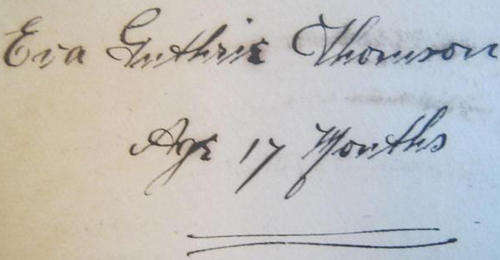 Eva Guthrie Thomson
Age 17 Months